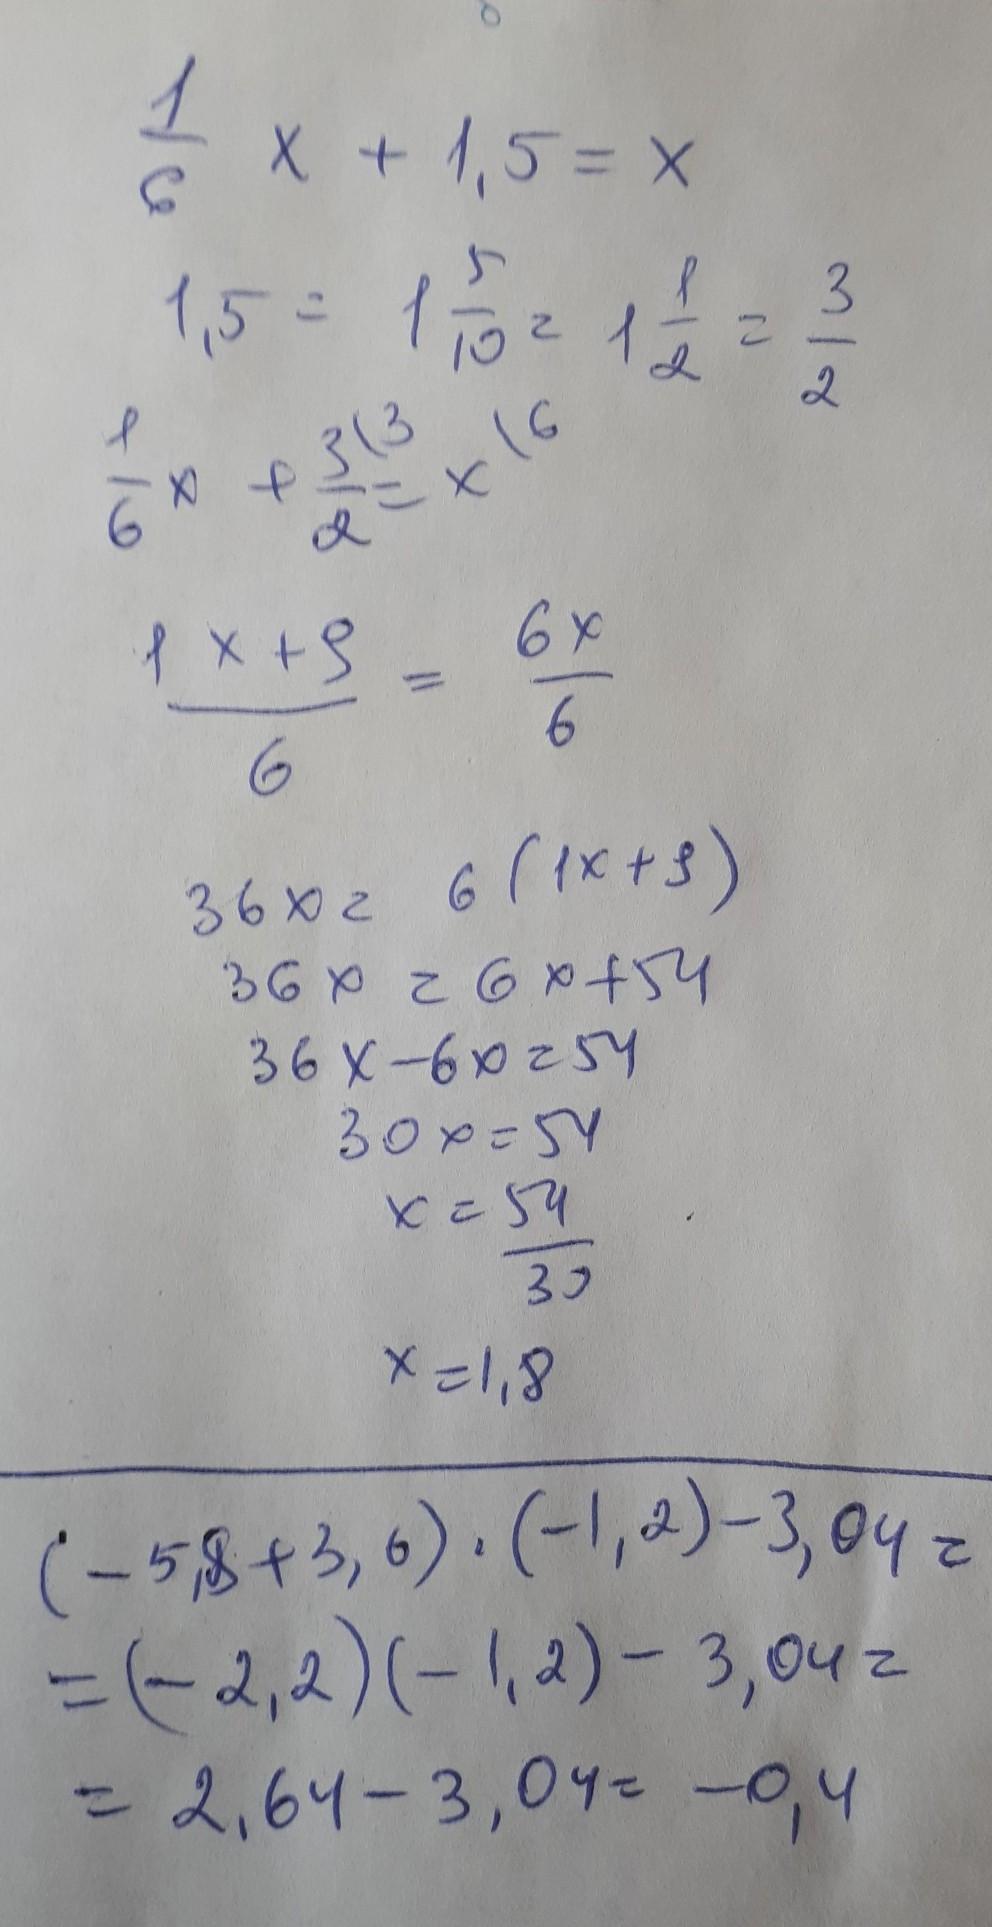 1/6 x + 1,5 = x
1,5 = 1 5/10 = 1 1/2 = 3/2
1/6 x + 3/2 (3 = x (6
(1x+9)/6 = 6x/6
36x = 6(1x+9)
36x = 6x+54
36x-6x=54
30x=54
x = 54/30
x = 1,8
(-5,8+3,6)·(-1,2)-3,04=
=(-2,2)(-1,2)-3,04=
= 2,64-3,04= -0,4